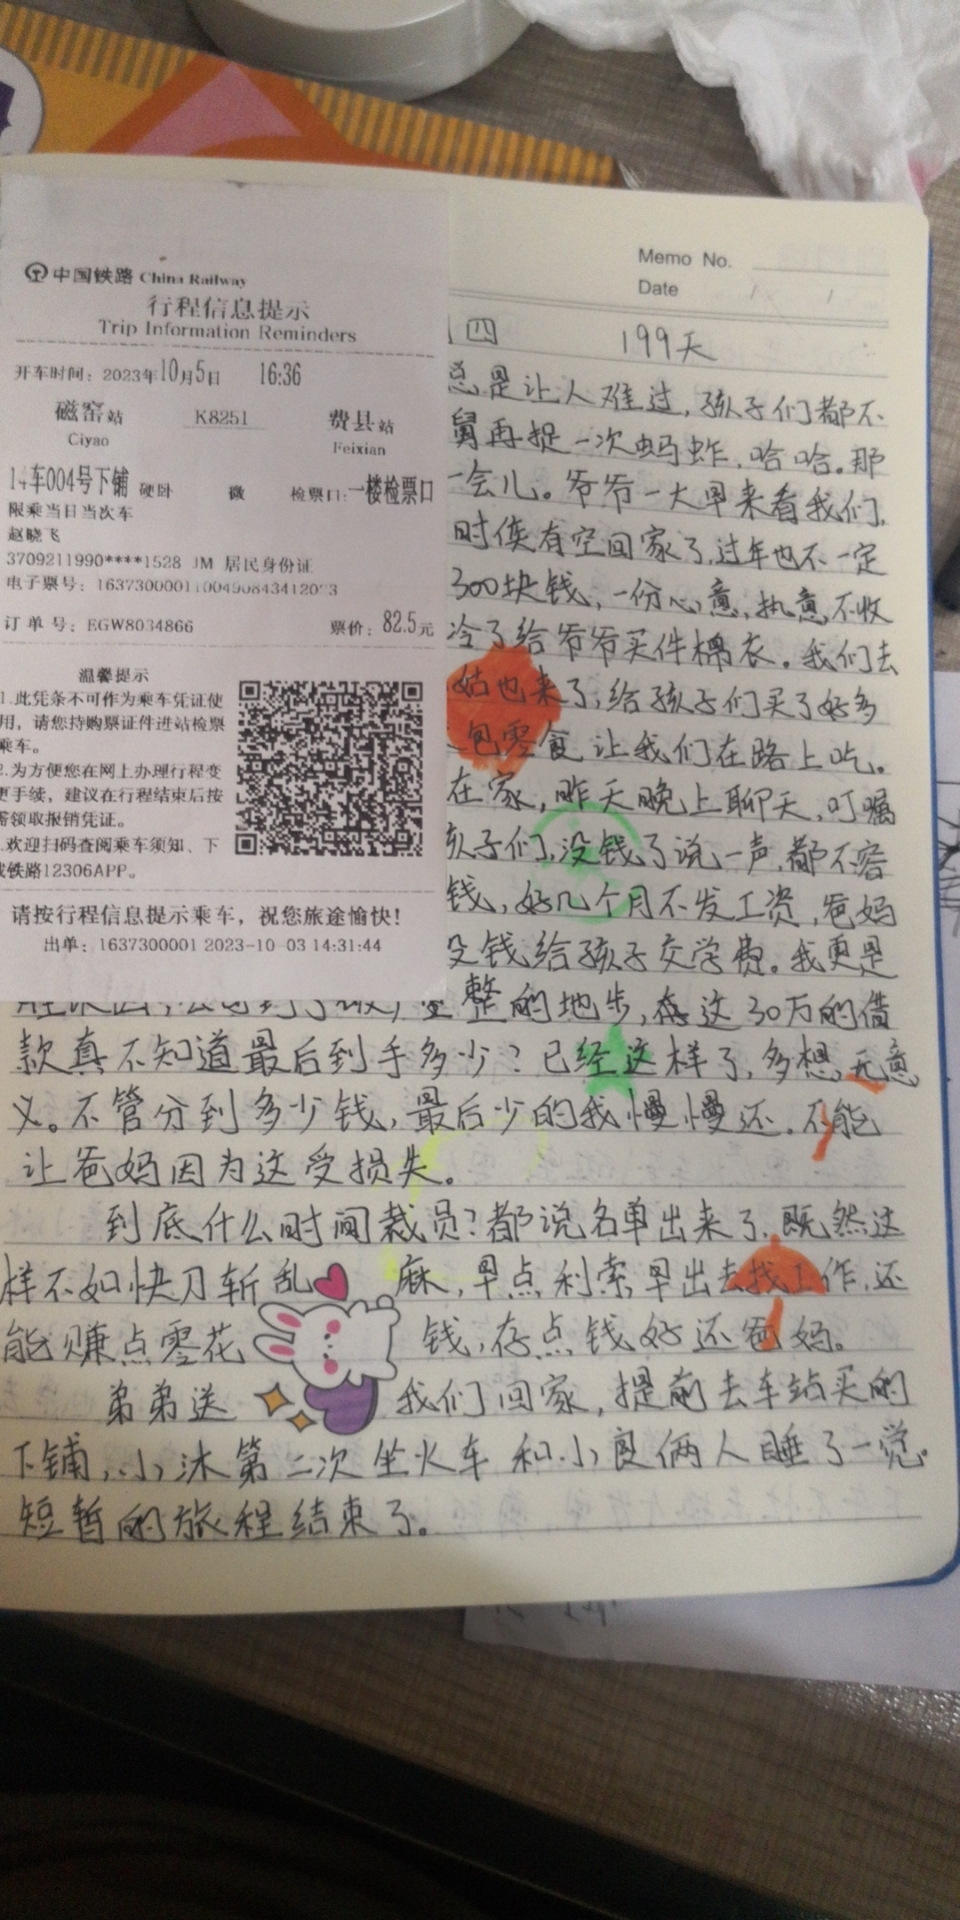 中国铁路 China Railway
行程信息提示
Trip Information Reminders
开车时间：2023年10月5日 16:36
磁窑站 K8251 费县站
Ciyao Feixian
14车004号下铺 硬卧 微 检票口：一楼检票口
限乘当日当次车
赵晓飞
3709211990****1528 JM 居民身份证
电子票号：
订单号：EGW8034866 票价：82.5元
温馨提示
1.此凭条不可作为乘车凭证使
用，请您持购票证件进站检票
乘车。
2.为方便您在网上办理行程变
更手续，建议在行程结束后按
需领取报销凭证。
欢迎扫码查阅乘车须知、下
载铁路12306APP。
请按行程信息提示乘车，祝您旅途愉快！
出单：1637300001 2023-10-03 14:31:44
Memo No.
Date / /
四 199天
总是让人难过，孩子们都不
舅再捉一次蚂蚱，哈哈。那
一会儿。爷爷一大早来看我们，
时侯有空回家了，过年也不一定
300块钱，一份心意，执意不收
冷了给爷爷买件棉衣。我们去
姑也来了，给孩子们买了好多
包零食让我们在路上吃。
在家，昨天晚上聊天，叮嘱
孩子们，没钱了说一声，都不容
钱，好几个月不发工资，爸妈
没钱给孩子交学费。我更是
整的地步，存这30万的借
款真不知道最后到手多少？已经这样了，多想无意
义。不管分到多少钱，最后少的我慢慢还，不能
让爸妈因为这受损失。
到底什么时间裁员？都说名单出来了，既然这
样不如快刀斩乱麻，早点利索早出去找工作，还
能赚点零花钱，存点钱好还爸妈。
弟弟送我们回家，提前去车站买的
下铺，小沐第二次坐火车和小良俩人睡了一觉。
短暂的旅程结束了。